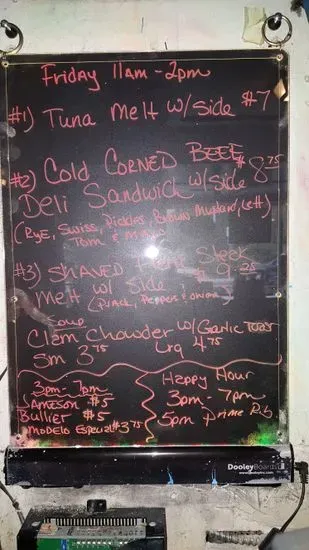 Friday 11am - 2pm
#1) Tuna Melt w/Side #7
#2) Cold Corned Beef $8.75
Deli Sandwich w/Side
(Rye, Swiss, Pickles, Brown Mustard, Lett)
Tom & Mayo
#3) Shaved Steak
Melt w/ Side $9.25
(Pjack, Peppers & onion)
Soup
Clam Chowder w/Garlic Toast
Sm 3.75 Lrg 4.75
3pm - 7pm
Jameson #5
Bulliet #5
Modelo Especial #3.75
Happy Hour
3pm - 7pm
5pm Prime Rib
DooleyBoards
www.dooleyinc.com